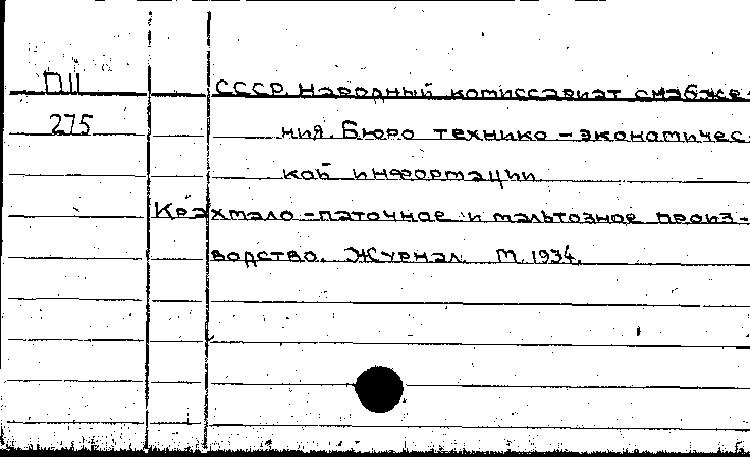 П11 СССР. Народный комиссариат снабже-
275 ния. Бюро технико-экономичес-
кой информации
Крахмало-паточное и мальтозное произ-
водство. Журнал. М. 1934.